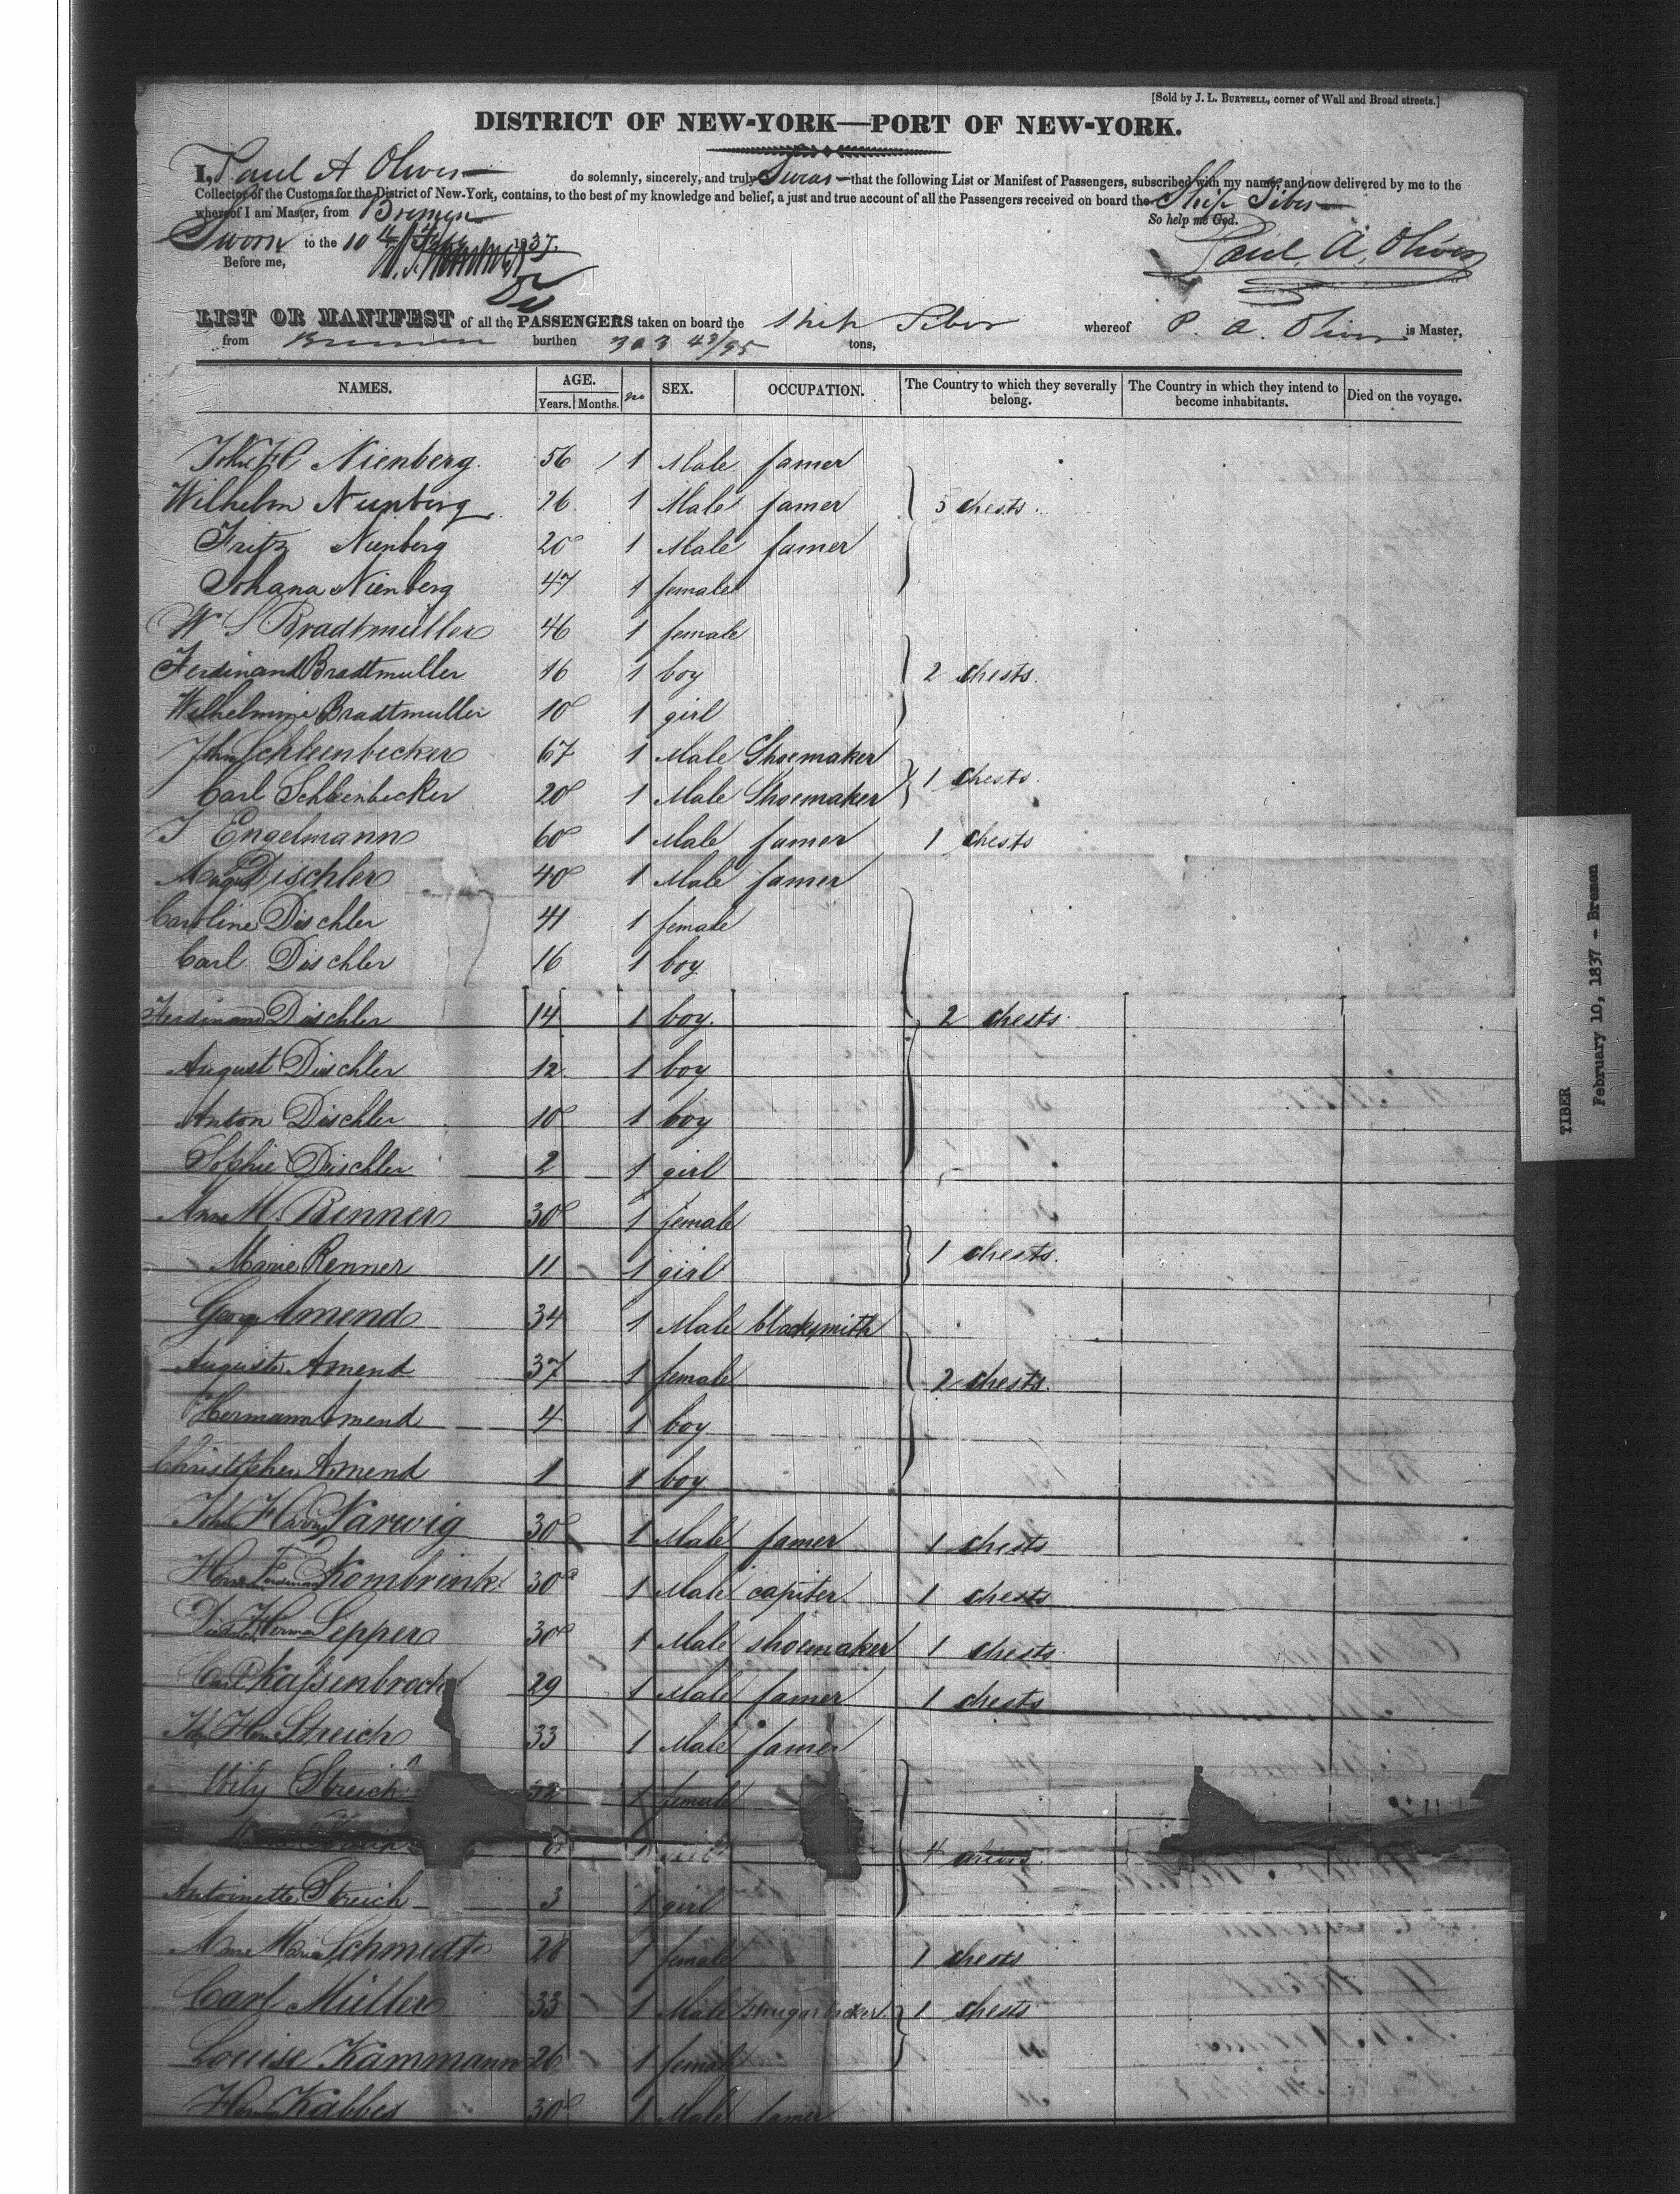 [Sold by J. L. BURTSELL, corner of Wall and Broad streets.]
DISTRICT OF NEW-YORK—PORT OF NEW-YORK.
I, Paul A Oliver do solemnly, sincerely, and truly Swear that the following List or Manifest of Passengers, subscribed with my name, and now delivered by me to the
Collector of the Customs for the District of New-York, contains, to the best of my knowledge and belief, a just and true account of all the Passengers received on board the Ship Tiber
whereof I am Master, from Bremen
So help me God.
Sworn to the 10th 1837.
Before me,
Paul, A, Oliver
LIST OR MANIFEST of all the PASSENGERS taken on board the Ship Tiber whereof P. A. Oliver is Master,
from Bremen burthen 303 43/95 tons,
NAMES. AGE. Years. Months. SEX. OCCUPATION. The Country to which they severally belong. The Country in which they intend to become inhabitants. Died on the voyage.
Nienberg 56 1 Male famer
Wilhelm Nienberg 26 1 Male famer 5 chests
Fritz Nienberg 20 1 Male famer
Johana Nienberg 47 1 female
W S Bradtmuller 46 1 female
Ferdinand Bradtmuller 16 1 boy 2 chests
Wilhelmine Bradtmuller 10 1 girl
John Schleenbecker 67 1 Male Shoemaker
1 chests
Carl Schleenbecker 20 1 Male Shoemaker
J Engelmann 60 1 Male famer 1 chests
August Dischler 40 1 Male famer
Caroline Dischler 41 1 female
Carl Dischler 16 1 boy
Ferdinand Dischler 14 1 boy. 2 chests
August Dischler 12 1 boy
Anton Dischler 10 1 boy
Sophie Dischler 2 1 girl
Anna M. Renner 30 1 female
Marie Renner 11 1 girl 1 chests.
George Amend 34 1 Male blacksmith
Auguste Amend 37 1 female 2 chests.
Hermann Amend 4 1 boy
Christopher Amend 1 1 boy
John Narwig 30 1 Male famer 1 chests
Ferdinand Kombrink 30 1 Male capiter 1 chests
Diedrich Herman Lepper 30 1 Male shoemaker 1 chests
Carl Kassenbrock 29 1 Male famer 1 chests
Streich 33 1 Male famer
Streich 32 1 female
6 1 4
Antoinette Streich 3 1 girl
Marie Schmidt 28 1 female 1 chests
Carl Müller 33 1 Male 1 chests
Louise Kammann 26 1 female
Kabbes 30 1 Male famer
TIBER
February 10, 1837 - Bremen